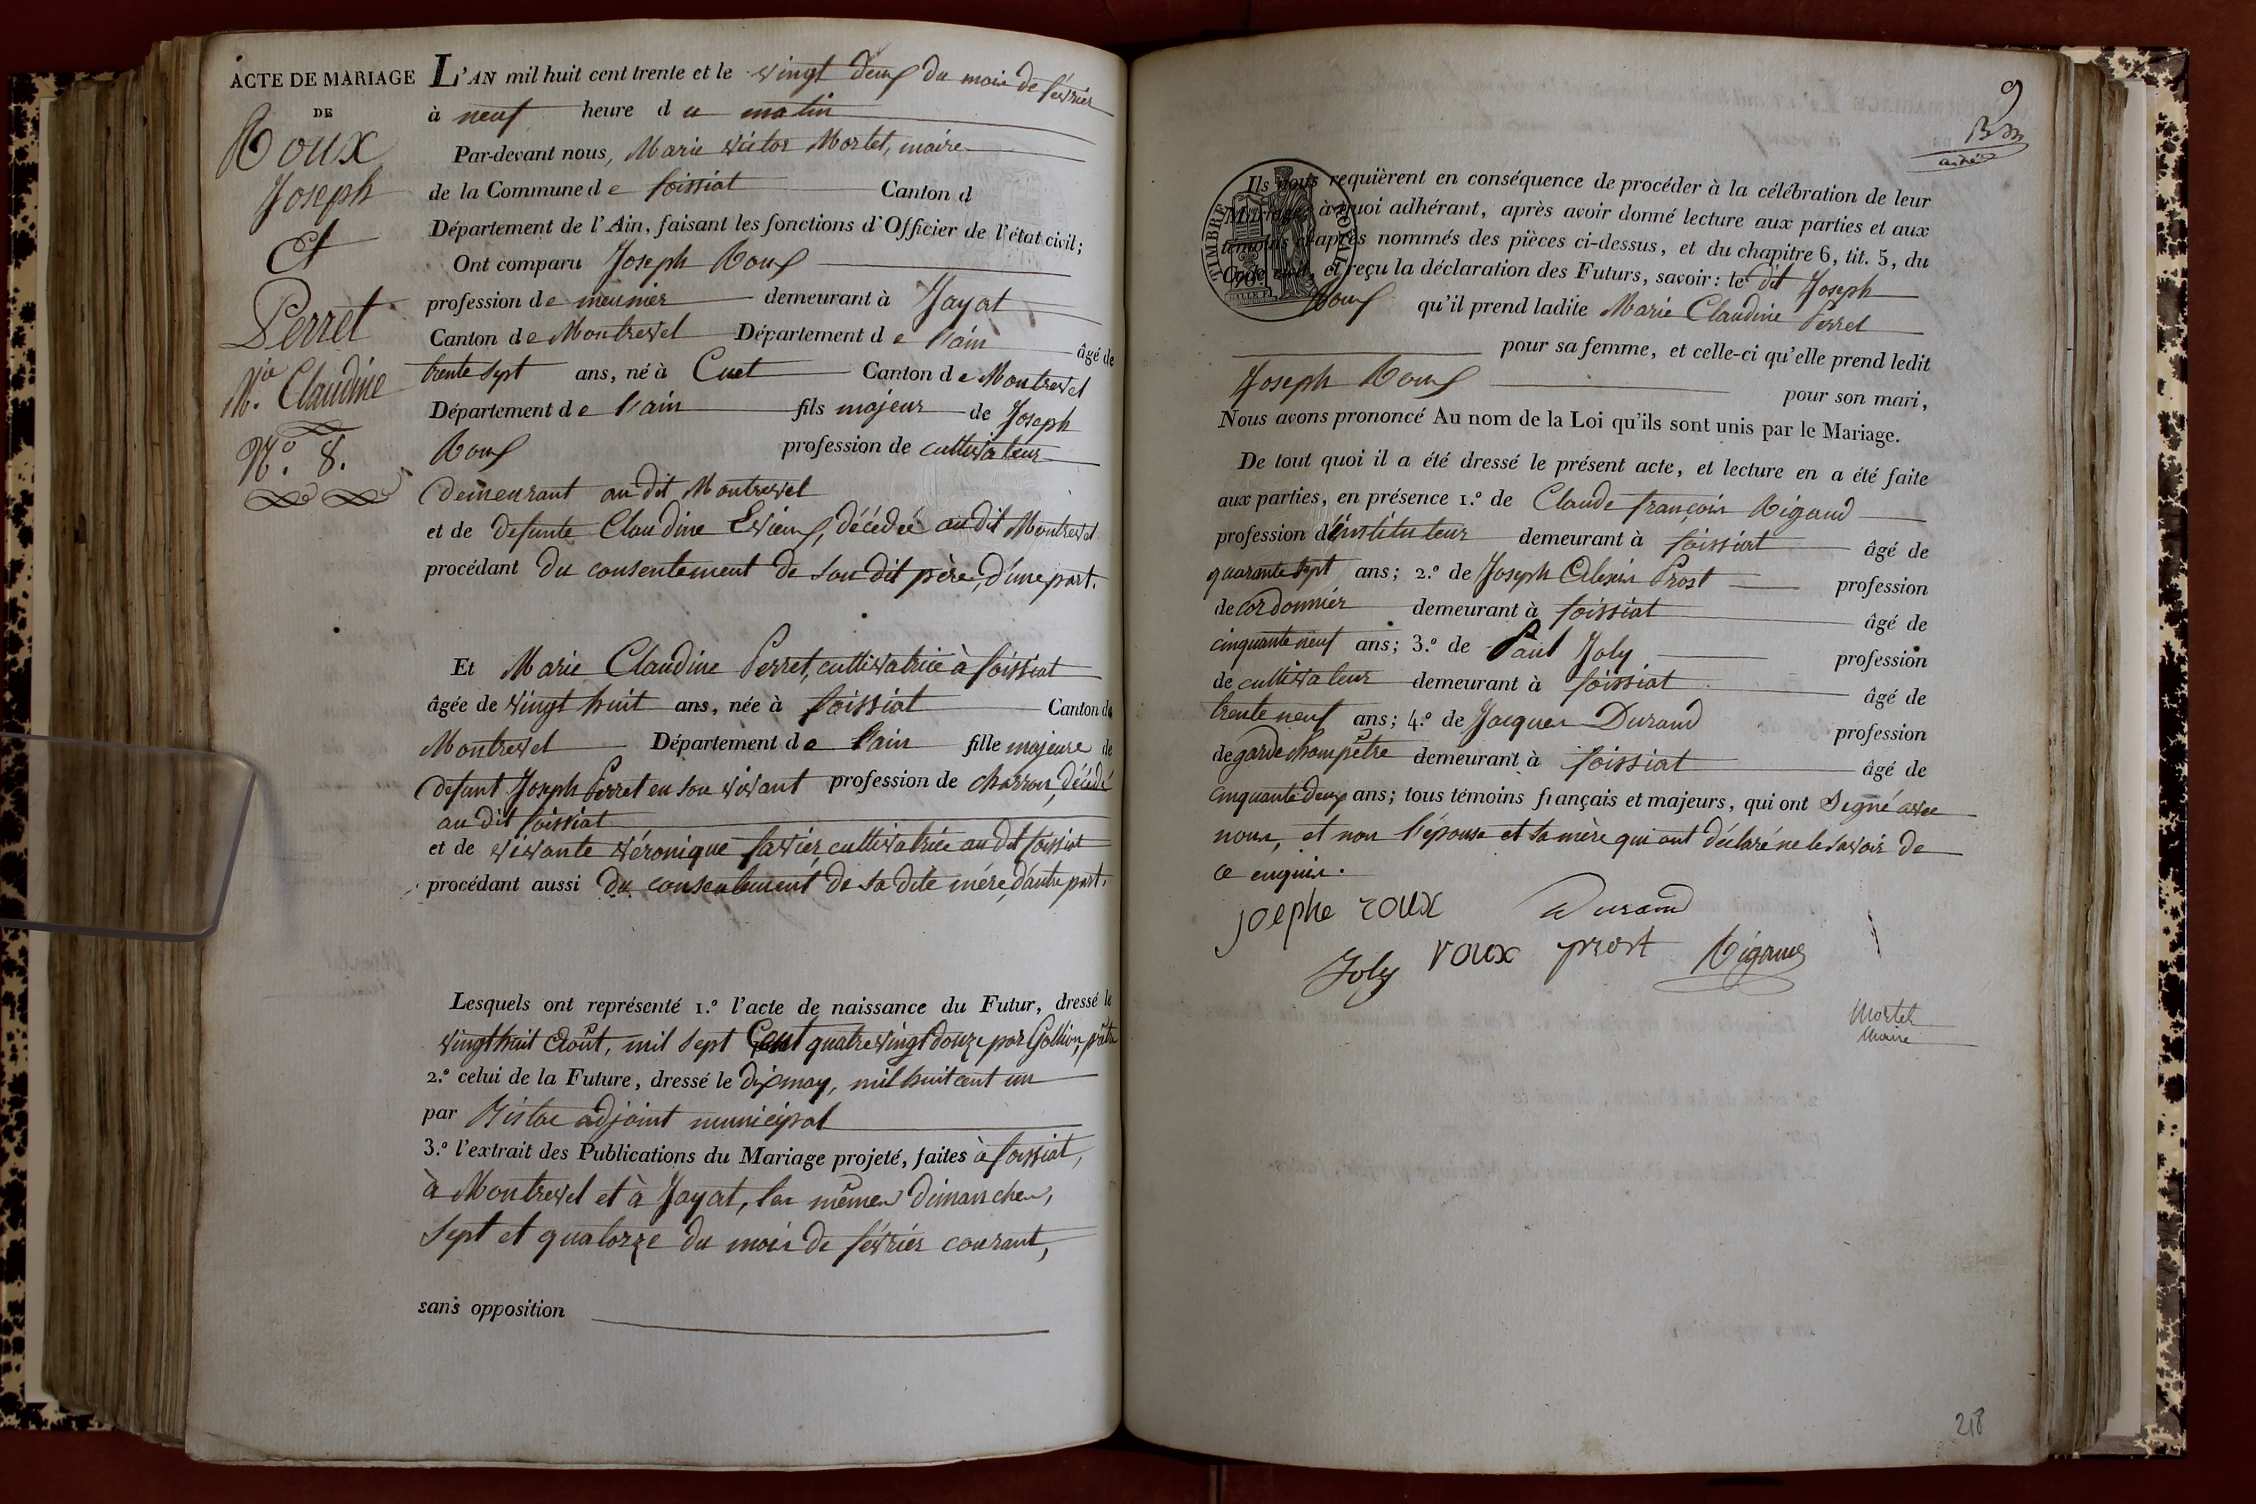 ACTE DE MARIAGE
DE
Roux
Joseph
Et
Perret
Mie. Claudine
N.° 8.
L'AN mil huit cent trente et le vingt deux du mois de février
à neuf heure du matin
Par-devant nous, Marie victor Mortet, maire
de la Commune de foissiat Canton d
Département de l'Ain, faisant les fonctions d'Officier de l'état civil;
Ont comparu Joseph Roux
profession de meunier demeurant à Jayat
Canton de Montrevel Département de l'ain âgé de
trente sept ans, né à Cuet Canton de Montrevel
Département de l'ain fils majeur de Joseph
Roux profession de cultivateur
demeurant au dit Montrevel
et de defunte Claudine Evieux, décédée au dit Montrevel
procédant du consentement de son dit père, d'une part.
Et Marie Claudine Perret, cultivatrice à foissiat
âgée de vingt huit ans, née à foissiat Canton de
Montrevel Département de l'ain fille majeure de
defunt Joseph Perret en son vivant profession de charron, décédé
au dit foissiat
et de vivante véronique favier, cultivatrice au dit foissiat
procédant aussi du consentement de sa dite mére, d'autre part.
Lesquels ont représenté 1.° l'acte de naissance du Futur, dressé le
vingt huit Août, mil sept Cent quatre vingt douze par Gollion, prêtre
2.° celui de la Future, dressé le dix may, mil huit cent un
par adjoint municipal
3.° l'extrait des Publications du Mariage projeté, faites à foissiat,
à Montrevel et à Jayat, les mêmes dimanches,
sept et quatorze du mois de février courant,
sans opposition
9
TIMBRE ROYAL
Ils nous requièrent en conséquence de procéder à la célébration de leur
Mariage, à quoi adhérant, après avoir donné lecture aux parties et aux
témoins ci-après nommés des pièces ci-dessus, et du chapitre 6, tit. 5, du
Code civil, et reçu la déclaration des Futurs, savoir: le dit Joseph
Roux qu'il prend ladite Marie Claudine Perret
pour sa femme, et celle-ci qu'elle prend ledit
Joseph Roux pour son mari,
Nous avons prononcé Au nom de la Loi qu'ils sont unis par le Mariage.
De tout quoi il a été dressé le présent acte, et lecture en a été faite
aux parties, en présence 1.° de Claude françois Rigaud
profession d'instituteur demeurant à foissiat âgé de
quarante sept ans; 2.° de Joseph Alexis Prost profession
de cordonnier demeurant à foissiat âgé de
cinquante neuf ans; 3.° de Paul Joly profession
de cultivateur demeurant à foissiat âgé de
trente neuf ans; 4.° de Jacques Durand profession
de garde champêtre demeurant à foissiat âgé de
cinquante deux ans; tous témoins français et majeurs, qui ont signé avec
nous, et non l'épouse et sa mère qui ont déclaré ne le savoir de
ce enquis.
josephe roux Durand
Joly roux prost Rigaud
Mortet
Maire
218